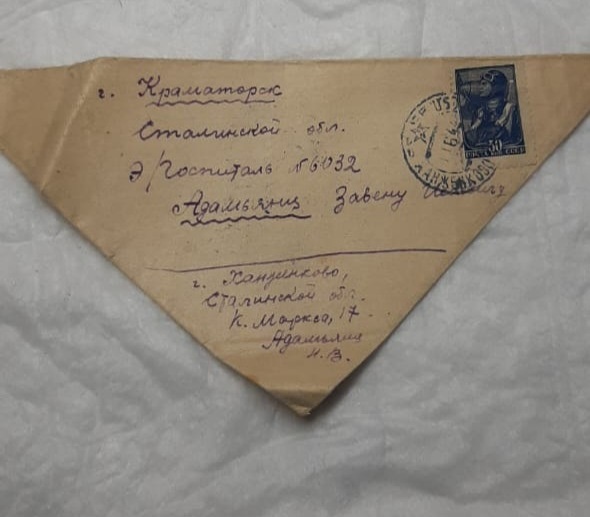 г. Краматорск
Сталинской обл.
Э/Госпиталь №6032
Адамьянц Завену
г. Ханженково,
Сталинской обл.
К. Маркса, 17.
Адамьянц
Н.В.
30
ПОЧТА СССР
ХАНЖЕНКОВО